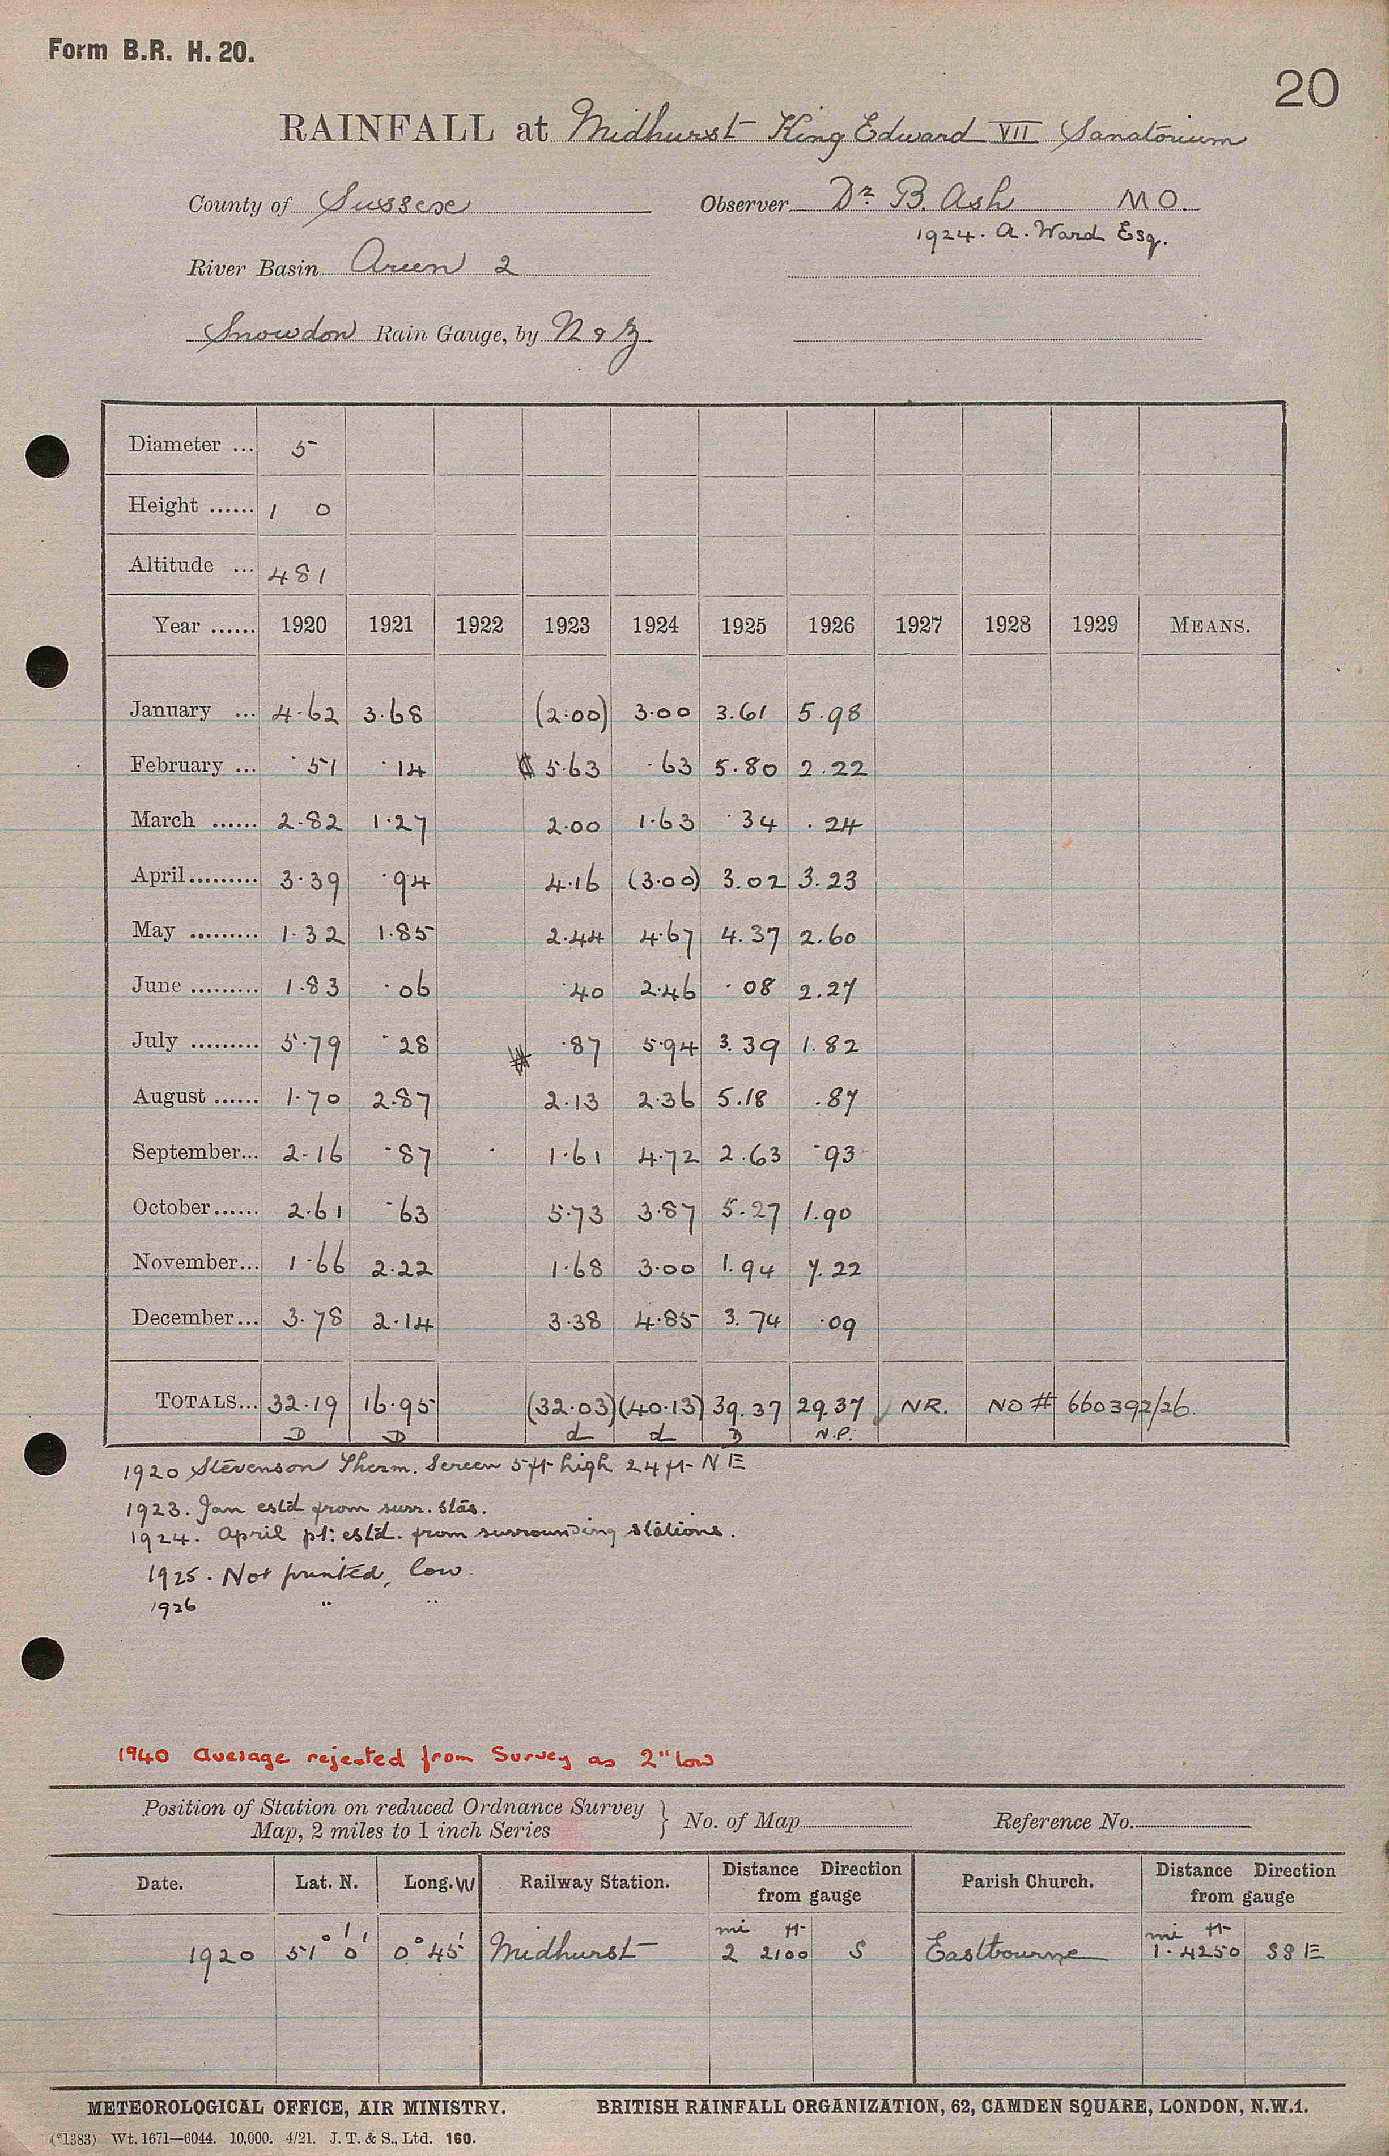 Form B.R. H. 20.
20
RAINFALL at Midhurst King Edward VII Sanatorium
County of Sussex Observer Dr. B. Ash M O.
1924. A. Ward Esq.
River Basin Arun 2
Snowdon Rain Gauge, by N & Z
Diameter ... 5
Height ...... 1 0
Altitude ... 481
Year ...... 1920 1921 1922 1923 1924 1925 1926 1927 1928 1929 MEANS.
January ... 4.62 3.68 (2.00) 3.00 3.61 5.98
February ... .51 .14 5.63 .63 5.80 2.22
March ...... 2.82 1.27 2.00 1.63 .34 .24
April......... 3.39 .94 4.16 (3.00) 3.02 3.23
May ......... 1.32 1.85 2.44 4.67 4.37 2.60
June ......... 1.83 .06 .40 2.46 .08 2.27
July ......... 5.79 .28 # .87 5.94 3.39 1.82
August ...... 1.70 2.87 2.13 2.36 5.18 .87
September... 2.16 .87 1.61 4.72 2.63 .93
October...... 2.61 .63 5.73 3.87 5.27 1.90
November... 1.66 2.22 1.68 3.00 1.94 7.22
December... 3.78 2.14 3.38 4.85 3.74 .09
TOTALS... 32.19 16.95 (32.03) (40.13) 39.37 29.37 ✓ NR. NO # 660392/26.
D D d d D N.P.
1920 Stevenson Therm. Screen 5 ft high 24 ft N E
1923. Jan estd from surr. stas.
1924. April pt: estd. from surrounding stations.
1925. Not printed, low.
1926 " "
1940 Average rejected from Survey as 2" low
Position of Station on reduced Ordnance Survey
Map, 2 miles to 1 inch Series } No. of Map Reference No.
Date. Lat. N. Long. W Railway Station. Distance Direction from gauge Parish Church. Distance Direction from gauge
mi ft mi ft
1920 51° 0' 0° 45' Midhurst 2 2100 S Eastbourne 1. 4250 SSE
METEOROLOGICAL OFFICE, AIR MINISTRY. BRITISH RAINFALL ORGANIZATION, 62, CAMDEN SQUARE, LONDON, N.W.1.
(*1383) Wt. 1671—6044. 10,000. 4/21. J. T. & S., Ltd. 160.